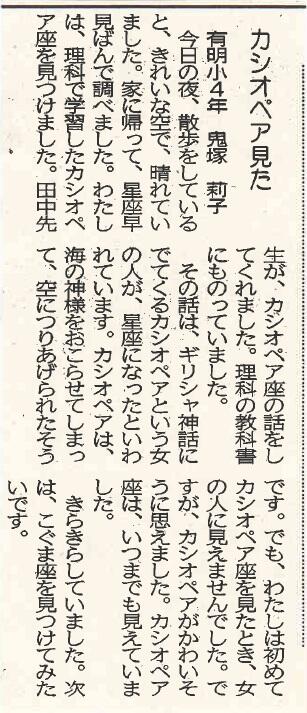 カシオペア見た
有明小４年　鬼塚　莉子
今日の夜、散歩をしている
と、きれいな空で、晴れてい
ました。家に帰って、星座早
見ばんで調べました。わたし
は、理科で学習したカシオペ
ア座を見つけました。田中先
生が、カシオペア座の話をし
てくれました。理科の教科書
にものっていました。
その話は、ギリシャ神話に
でてくるカシオペアという女
の人が、星座になったといわ
れています。カシオペアは、
海の神様をおこらせてしまっ
て、空につりあげられたそう
です。でも、わたしは初めて
カシオペア座を見たとき、女
の人に見えませんでした。で
すが、カシオペアがかわいそ
うに思えました。カシオペア
座は、いつまでも見えていま
した。
きらきらしていました。次
は、こぐま座を見つけてみた
いです。